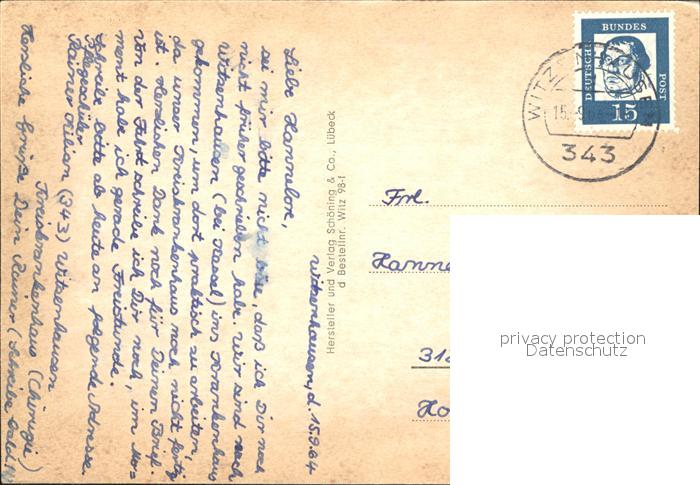 Witzenhausen, d. 15.9.64
Liebe Hannelore,
sei mir bitte nicht böse, daß ich Dir noch
nicht früher geschrieben habe. Wir sind nach
Witzenhausen (bei Kassel) ins Krankenhaus
gekommen, um dort praktisch zu arbeiten,
da unser Kreiskrankenhaus noch nicht fertig
ist. Herzlichen Dank noch für Deinen Brief.
Von der Fahrt schreibe ich Dir noch, im Mo-
ment habe ich gerade Freistunde.
Schreibe bitte ab heute an folgende Adresse.
Pflegeschüler
Rainer Kilian (343) Witzenhausen
Kreiskrankenhaus (Chirurgie)
Herzliche Grüße Dein Rainer (Schreibe bald!)
Hersteller und Verlag Schöning & Co., Lübeck
d Bestellnr. Witz 98-f
DEUTSCHE BUNDES POST
15
WITZENHAUSEN
15.-9.64
343
Frl.
Hanne
318
Ho
privacy protection
Datenschutz